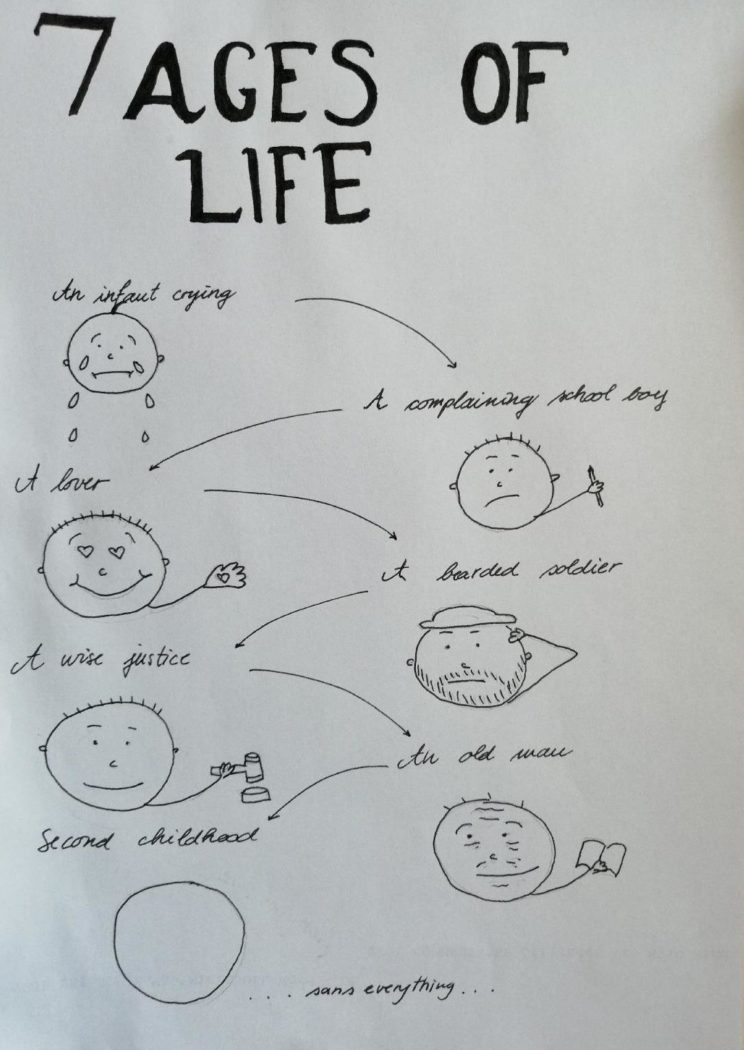 7 AGES OF
LIFE
An infant crying
A complaining school boy
A lover
A bearded soldier
A wise justice
An old man
Second childhood
. . . sans everything . . .